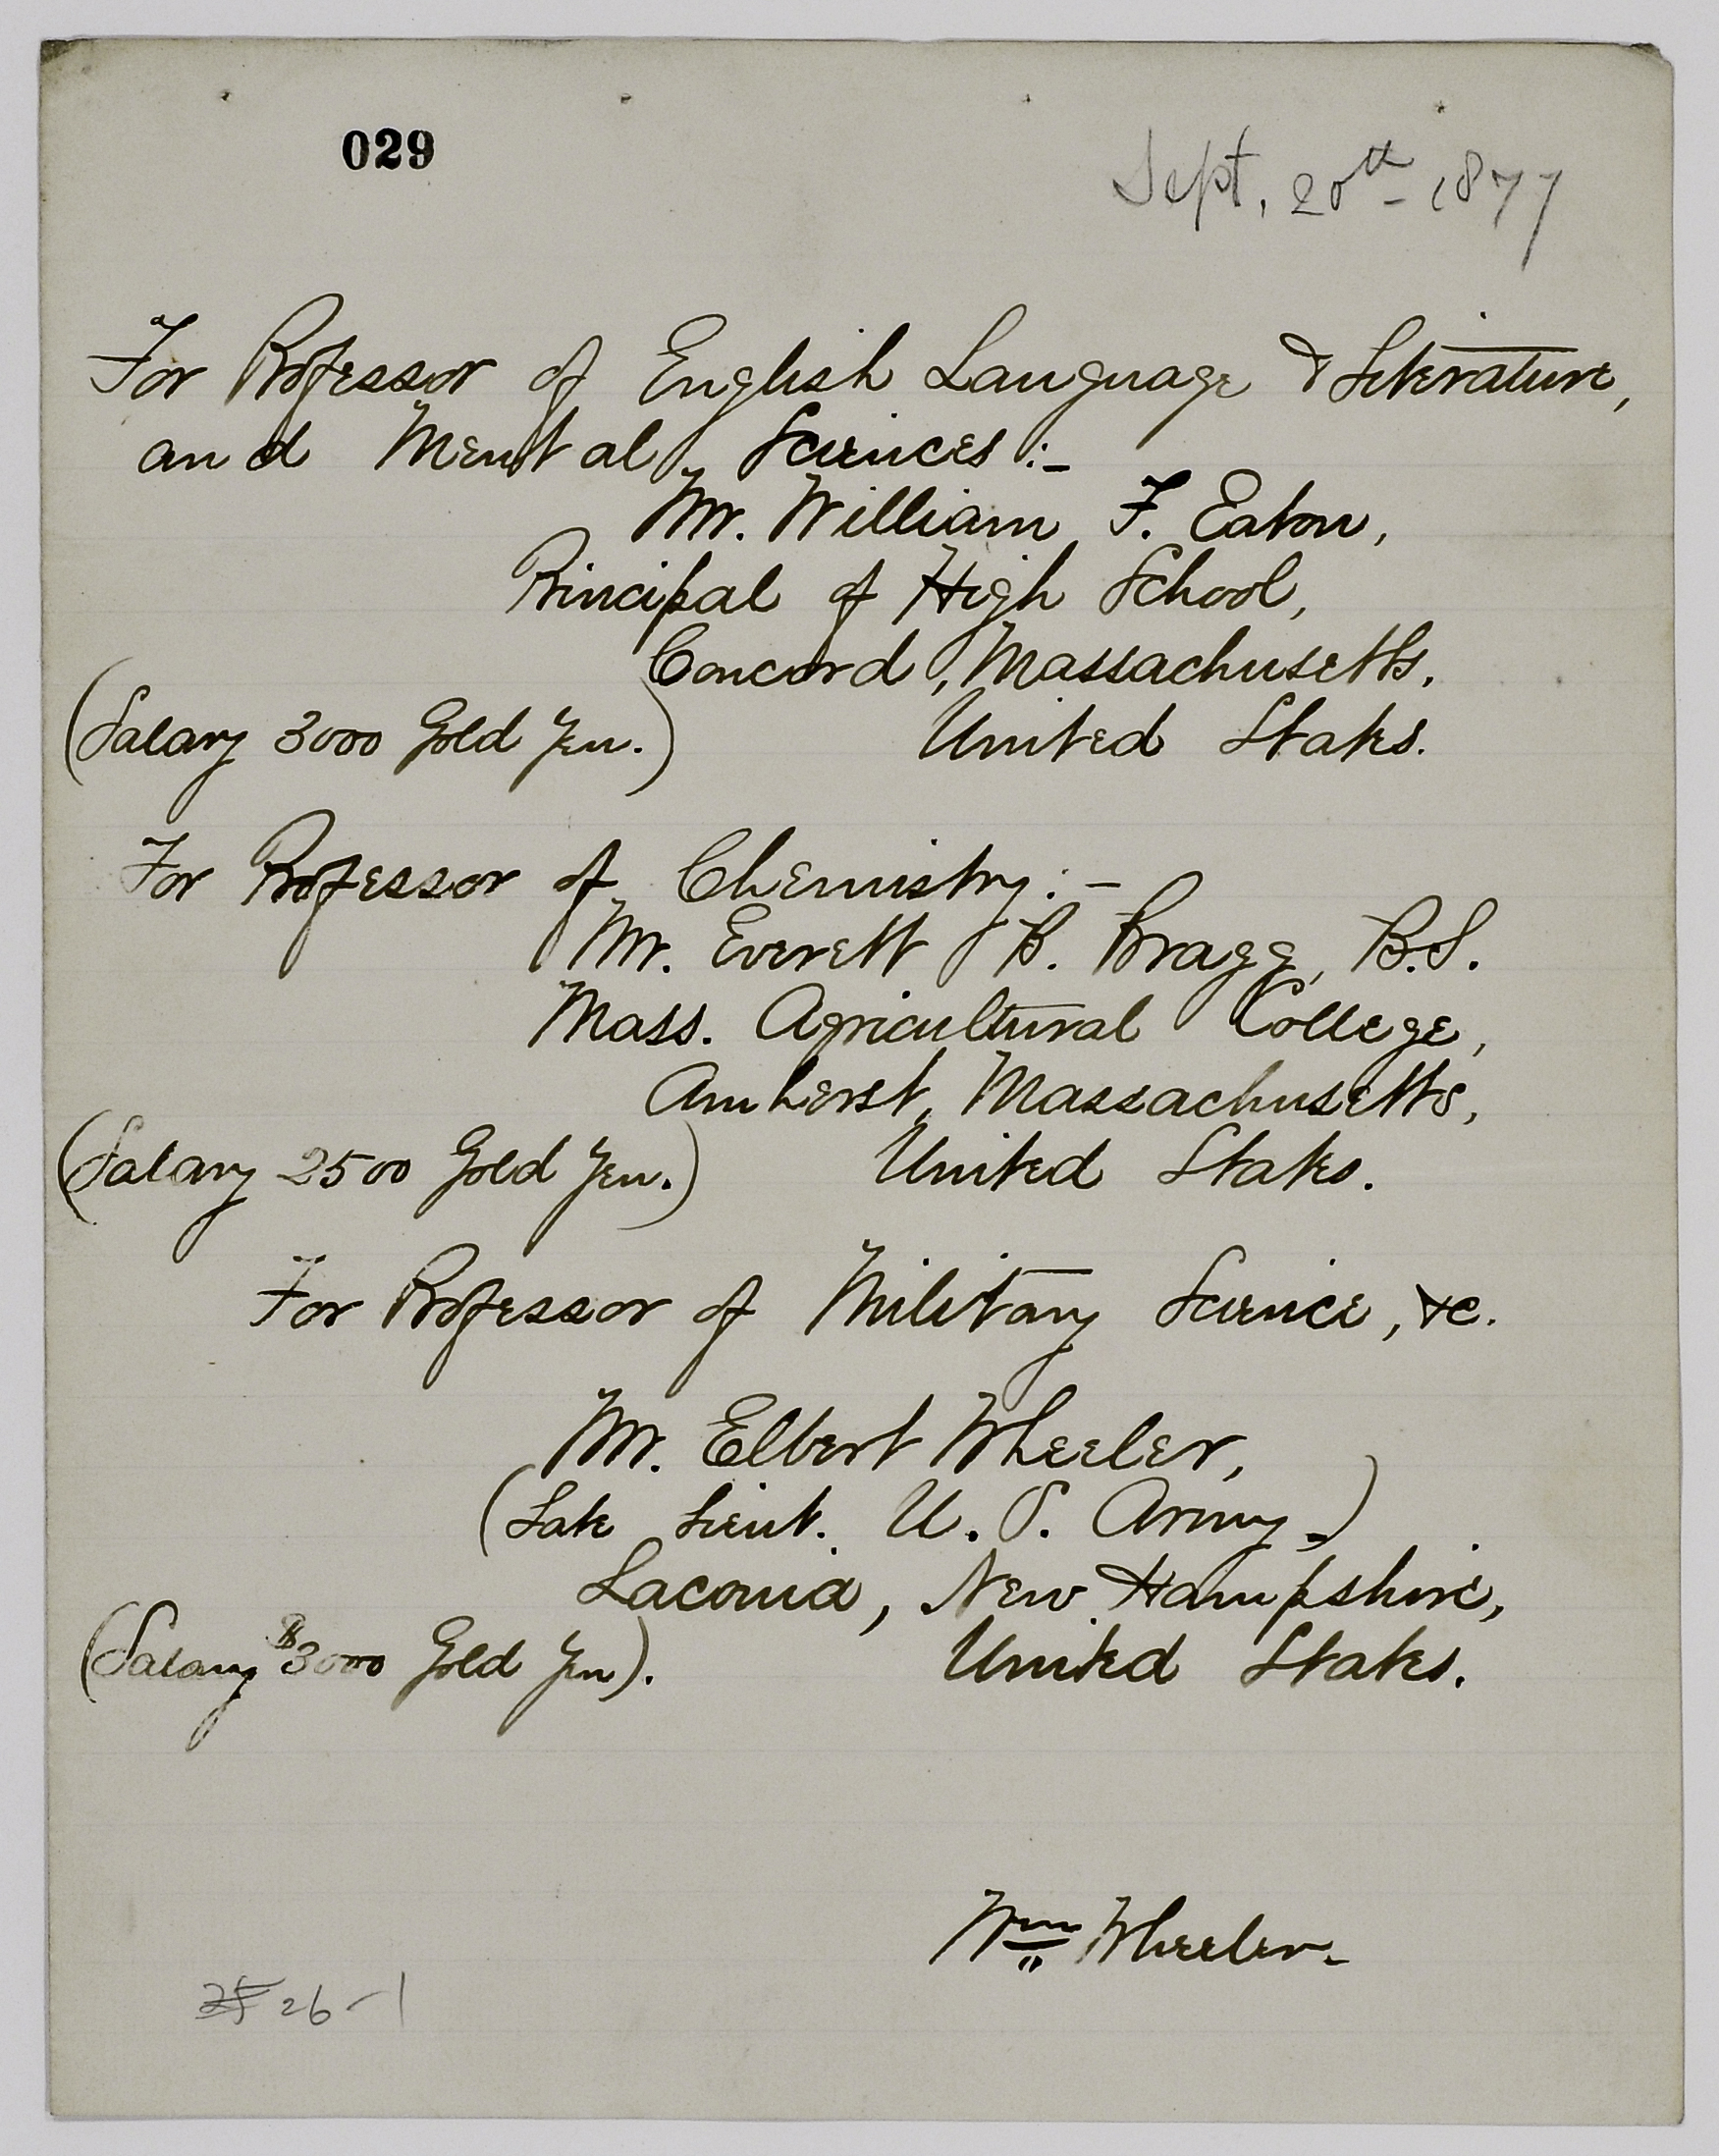 029
Sept. 20th - 1877
For Professor of English Language & Literature,
and Mental Sciences :-
Mr. William F. Eaton,
Principal of High School,
Concord, Massachusetts,
(Salary 3000 Gold Yen.) United States.
For Professor of Chemistry :-
Mr. Everett B. Bragg, B.S.
Mass. Agricultural College,
Amherst, Massachusetts,
(Salary 2500 Gold Yen.) United States.
For Professor of Military Science, &c.
Mr. Elbert Wheeler,
(Late Lieut. U. S. Army.)
Laconia, New Hampshire,
(Salary $3000 Gold Yen). United States.
Wm Wheeler.
26-1